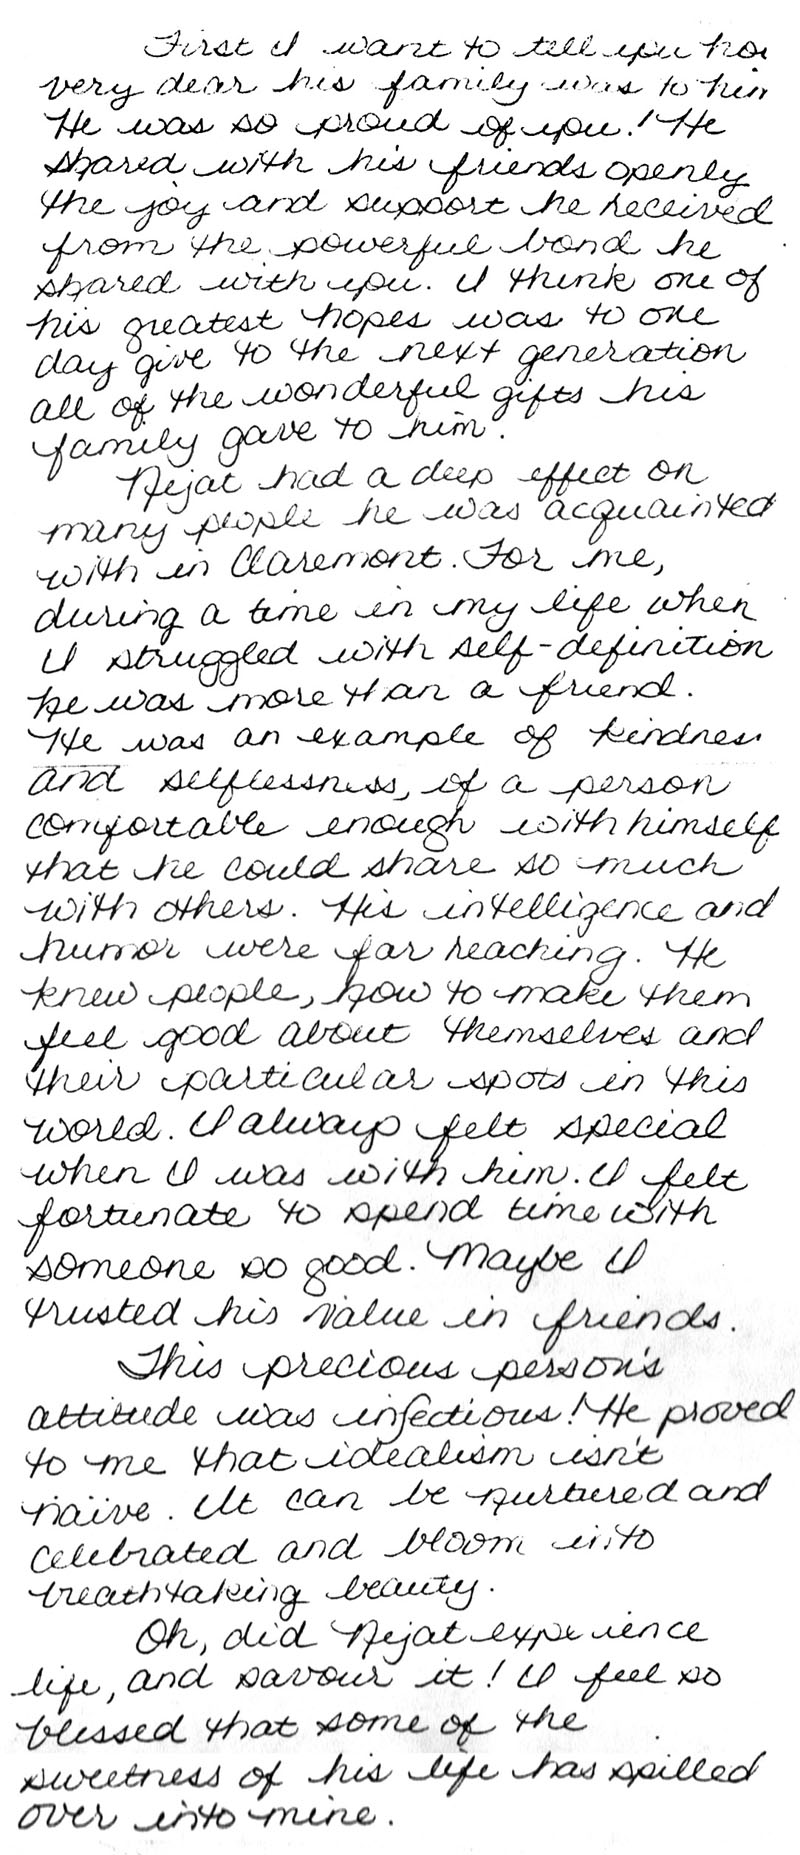 First I want to tell you how
very dear his family was to him
He was so proud of you! He
shared with his friends openly
the joy and support he received
from the powerful bond he
shared with you. I think one of
his greatest hopes was to one
day give to the next generation
all of the wonderful gifts his
family gave to him.
Nejat had a deep effect on
many people he was acquainted
with in Claremont. For me,
during a time in my life when
I struggled with self-definition
he was more than a friend.
He was an example of kindness
and selflessness, of a person
comfortable enough with himself
that he could share so much
with others. His intelligence and
humor were far reaching. He
knew people, how to make them
feel good about themselves and
their particular spots in this
world. I always felt special
when I was with him. I felt
fortunate to spend time with
someone so good. Maybe I
trusted his value in friends.
This precious person's
attitude was infectious! He proved
to me that idealism isn't
naive. It can be nurtured and
celebrated and bloom into
breathtaking beauty.
Oh, did Nejat experience
life, and savour it! I feel so
blessed that some of the
sweetness of his life has spilled
over into mine.